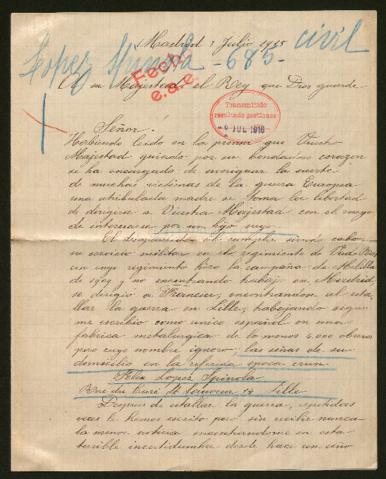 Madrid 1 Julio 1915
Lopez - 685 - civil
Fech.
e.a.e.
A su Majestad el Rey que Dios guarde
Transmitido
resultado gestiones
JUL 1916
Señor:
Habiendo leido en la prensa que Vuestra
Majestad guiado por su bondadoso corazon
se ha encargado de averiguar la suerte
de muchas victimas de la guerra Europea
una atribulada madre se toma la libertad
de dirigirse a Vuestra Majestad con el ruego
de interesarse por un hijo suyo
El desgraciado al cumplir sirvió cabo
su servicio militar en el regimiento de
cuyo regimiento hizo la campaña de Melilla
de 1909 y no encontrando trabajo en Madrid,
se dirigió a Francia, encontrandose al esta-
llar la guerra en Lille, trabajando segun
me escribio como unico español en una
fabrica metalurgica de lo menos 4,000 obreros
pero cuyo nombre ignoro, las señas de su
domicilio en la referida epoca eran
Felix Lopez Spinola
Rue du 78 Lille
Despues de estallar la guerra, repetidas
veces le hemos escrito pero sin recibir nunca
la menor noticia encontrandome en esta
terrible incertidumbre desde hace un año